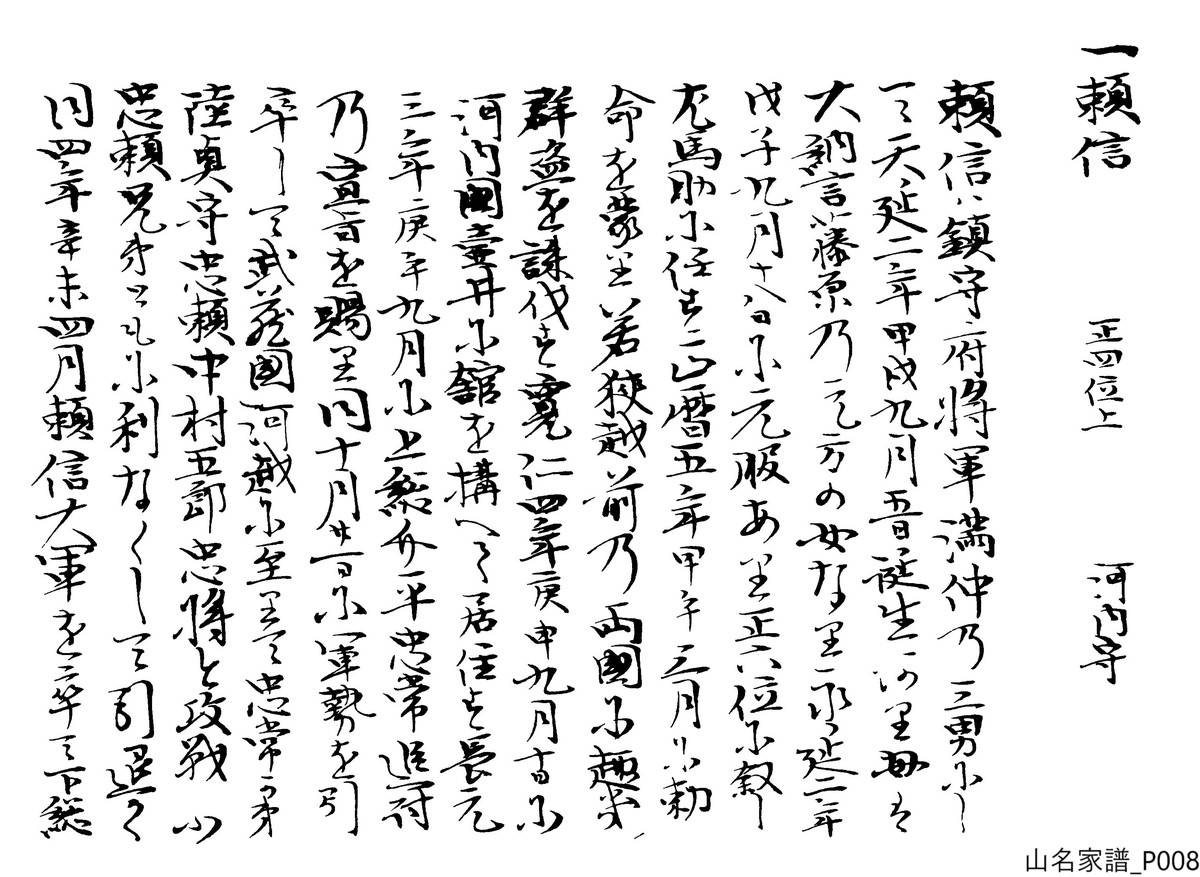 一頼信　正四位上　河内守
頼信ハ鎮守府将軍満仲乃三男にし
て天延二年甲戌九月五日誕生あり母は
大納言藤原乃元方の女なり永延二年
戊子九月十八日に元服あり正六位に叙し
左馬助に任す正暦五年甲午三月に勅
命を蒙り若狭越前乃両國に趣き
群盗を誅伐す寛仁四年庚申九月十日に
河内國壷井に舘を構へて居住す長元
三年庚午九月に上総介平忠常追討
乃宣旨を賜り同十月廿一日に軍勢を引
卒して武蔵國河越に至りて忠常か弟
陸奥守忠頼中村五郎忠将と攻戦ふ
忠頼兄弟ともに利なくして引退く
同四年辛未四月頼信大軍を卒て下総